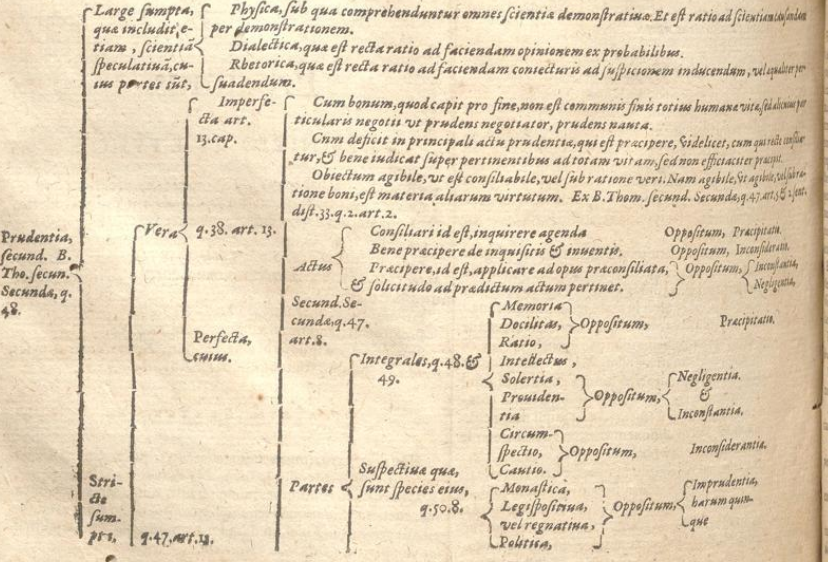 Large sumpta,
quæ includit, e-
tiam, scientiã
speculatiuã, cu-
ius partes sũt,
Physica, sub qua comprehenduntur omnes scientiæ demonstratiuæ. Et est ratio ad scientiam
per demonstrationem.
Dialectica, quæ est recta ratio ad faciendam opinionem ex probabilibus.
Rhetorica, quæ est recta ratio ad faciendam coniecturis ad suspicionem inducendum, vel qualiter per
suadendum.
Imperfe-
cta art.
13. cap.
Cum bonum, quod capit pro fine, non est communis finis totius humanæ vitæ, sed alicuius par
ticularis negotii vt prudens negotiator, prudens nauta.
Cnm deficit in principali actu prudentiæ, qui est præcipere, videlicet, cum qui recte consilia-
tur, & bene iudicat super pertinentibus ad totam vitam, sed non efficiaciter præcipit.
Obiectum agibile, vt est consiliabile, vel sub ratione veri. Nam agibile, vt agibile, vel sub ra-
tione boni, est materia aliarum virtutum. Ex B. Thom. secund. Secundæ, q. 47. art. 5 & 3. sent.
dist. 33. q. 2. art. 2.
Prudentia,
secund. B.
Tho. secun.
Secundæ, q.
48.
Vera
q. 38. art. 13.
Actus
Consiliari id est, inquirere agenda Oppositum, Præcipitatio.
Bene præcipere de inquisitis & inuentis. Oppositum, Inconsideratio.
Præcipere, id est, applicare ad opus præconsiliata,
& solicitudo ad prædictum actum pertinet.
Oppositum, Inconstantia,
Negligentia,
Secund. Se-
cundæ, q. 47.
art. 8.
Perfecta,
cuius.
Integrales, q. 48. &
49.
Memoria
Docilitas,
Ratio,
Oppositum, Præcipitatio.
Intellectus,
Solertia,
Prouiden-
tia
Oppositum,
Negligentia.
&
Inconstantia,
Circum-
spectio,
Cautio.
Oppositum, Inconsiderantia.
Partes
Suspectiuæ quæ,
sunt species eius,
q. 50. 8.
Monastica,
Legispositiua,
vel regnatiua,
Politica,
Oppositum,
Imprudentia,
harum quin-
que
Stri-
cte
sum-
pta,
q. 47. art. 13.